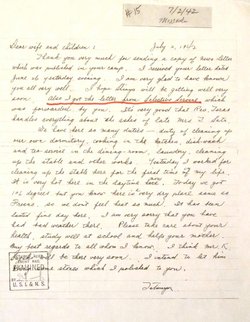 #15
7/2/42
Dear wife and children:
July 2, 1942
Thank you very much for sending a copy of news letter
which was published in your camp. I received your letter dated
June 26 yesterday evening. I am very glad to have known
you all very well. I hope things will be getting well very
soon. Also I got the letter from Selective Service which
was forwarded by you. It's very good that Rev.
handles everything about the sales of late Mrs.
We have here so many duties - duty of cleaning up
our own dormitory, cooking in the kitchen, dish wash
and tea server in the dining-room, laundry, cleaning
up the stable and other works. Yesterday I worked for
cleaning up the stable here for the first time of my life.
It is very hot here in the daytime here. Today we got
102 degree but you know here is very dry place, same as
Fresno, so we don't feel heat so much. It has been
lasted fine day here. I am very sorry that you have
had bad weather there. Please take care about your
health, study well at school and help your mother.
My best regards to all whom I know. I think Mr. K
will be there very soon. I intend to let him
some stones which I polished to you.
U.S.I.&N.S.